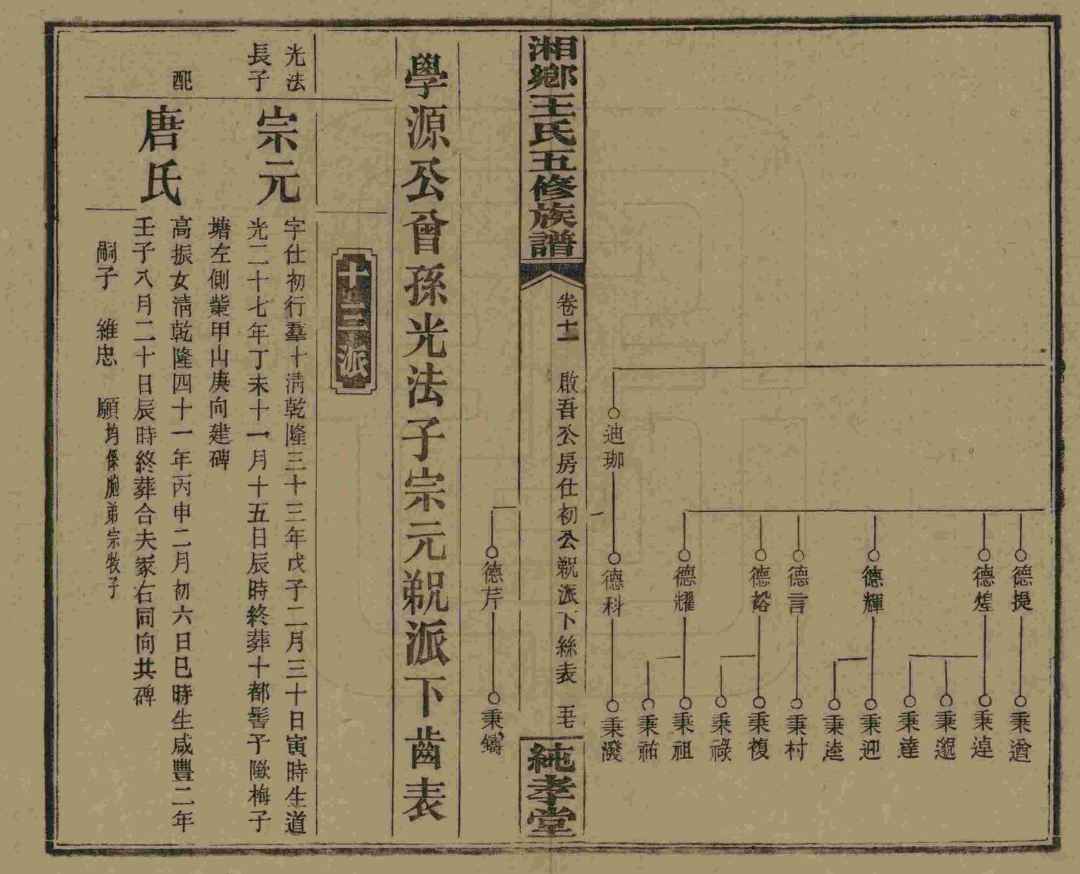 迪珈
德提
德煌
德輝
德言
德裕
德耀
德科
秉遒
秉遑
秉達
秉迎
秉村
秉復
秉祿
秉祖
秉祐
秉潑
湘鄉王氏五修族譜
卷十二
啟吾公房仕初公覡派下絲表
純孝堂
德芹
秉鐫
學源公曾孫光法子宗元覡派下齒表
十三派
光法
長子
宗元
字仕初行羣十清乾隆三十三年戊子二月三十日寅時生道
光二十七年丁未十一月十五日辰時終葬十都髻子嶽梅子
塘左側紫甲山庚向建碑
配
唐氏
高振女清乾隆四十一年丙申二月初六日巳時生咸豐二年
壬子八月二十日辰時終葬合夫冢右同向共碑
嗣子 維忠 願均係胞弟宗牧子